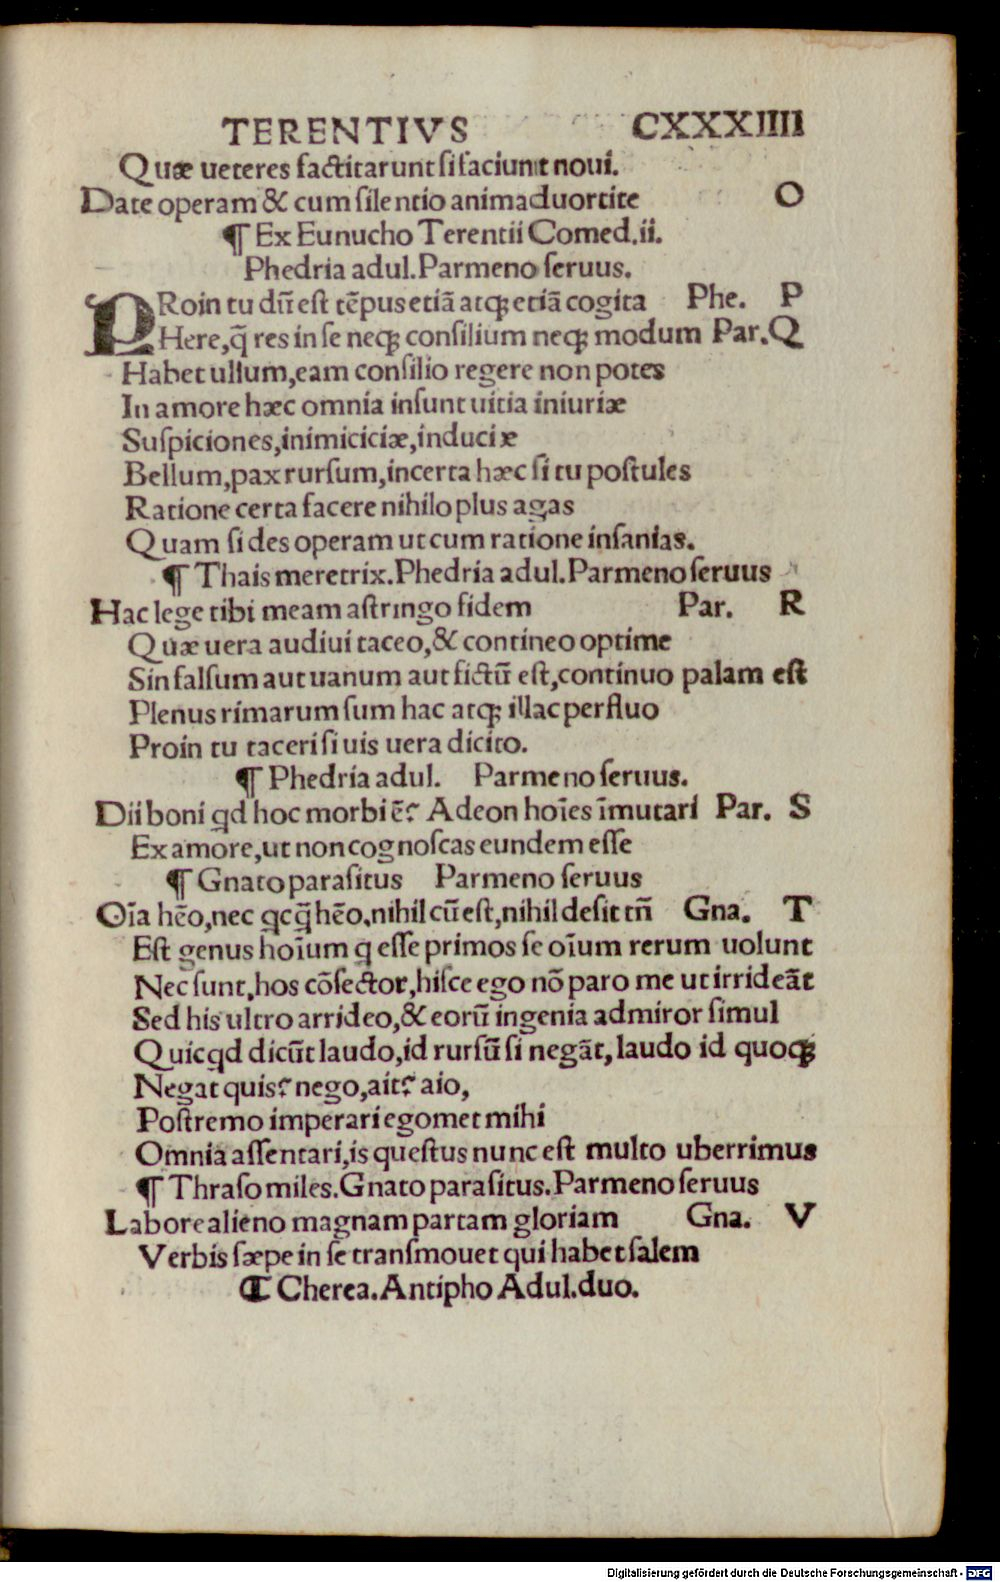 TERENTIVS CXXXIIII
Quæ ueteres factitarunt si faciunt noui.
Date operam & cum silentio animaduortite O
¶ Ex Eunucho Terentii Comed.ii.
Phedria adul.Parmeno seruus.
PRoin tu dũ est tẽpus etiã atqꝫ etiã cogita Phe. P
Here,q̃ res in se neqꝫ consilium neqꝫ modum Par.Q
Habet ullum,eam consilio regere non potes
In amore hæc omnia insunt uitia iniuriæ
Suspiciones,inimiciciæ,induciæ
Bellum,pax rursum,incerta hæc si tu postules
Ratione certa facere nihilo plus agas
Quam si des operam ut cum ratione insanias.
¶ Thais meretrix.Phedria adul.Parmeno seruus
Hac lege tibi meam astringo fidem Par. R
Quæ uera audiui taceo,& contineo optime
Sin falsum aut uanum aut fictũ est,continuo palam est
Plenus rimarum sum hac atqꝫ illac perfluo
Proin tu taceri si uis uera dicito.
¶ Phedria adul. Parmeno seruus.
Dii boni qd hoc morbi ẽ? Adeon hoĩes ĩmutari Par. S
Ex amore,ut non cognoscas eundem esse
¶ Gnato parasitus Parmeno seruus
Oĩa hẽo,nec qcq̃ hẽo,nihil cũ est,nihil desit tñ Gna. T
Est genus hoĩum q esse primos se oĩum rerum uolunt
Nec sunt,hos cõsector,hisce ego nõ paro me ut irrideãt
Sed his ultro arrideo,& eorũ ingenia admiror simul
Quicqd dicũt laudo,id rursũ si negãt,laudo id quoqꝫ
Negat quis? nego,ait? aio,
Postremo imperari egomet mihi
Omnia assentari,is questus nunc est multo uberrimus
¶ Thraso miles.Gnato parasitus.Parmeno seruus
Labore alieno magnam partam gloriam Gna. V
Verbis sæpe in se transmouet qui habet salem
¶ Cherea.Antipho Adul.duo.
Digitalisierung gefördert durch die Deutsche Forschungsgemeinschaft - DFG